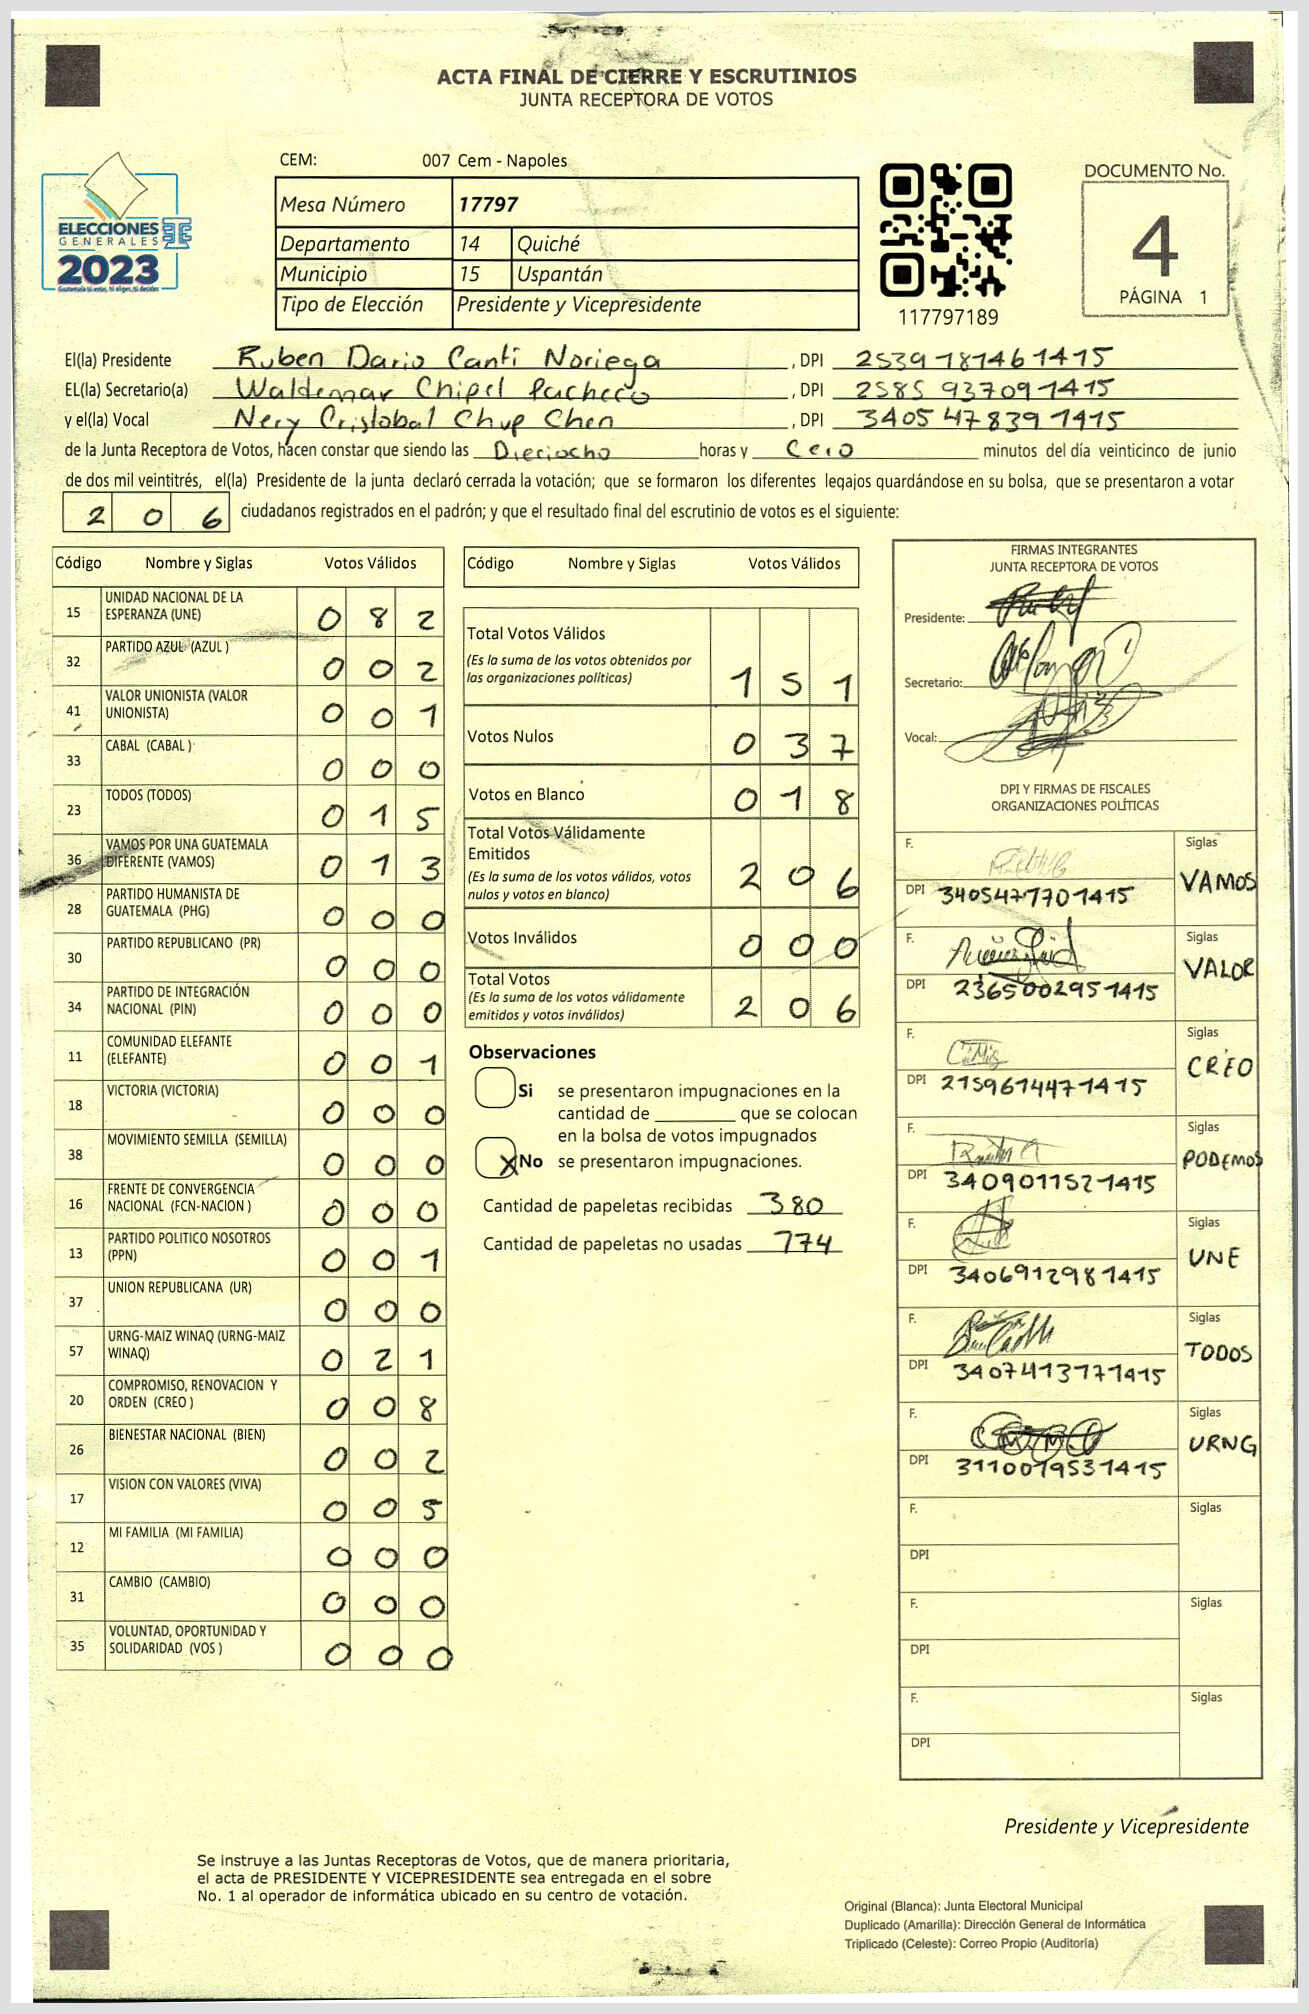 ACTA FINAL DE CIERRE Y ESCRUTINIOS
JUNTA RECEPTORA DE VOTOS
ELECCIONES
GENERALES
2023
CEM: 007 Cem - Napoles
Mesa Número 17797
Departamento 14 Quiché
Municipio 15 Uspantán
Tipo de Elección Presidente y Vicepresidente
117797189
DOCUMENTO No.
4
PÁGINA 1
El(la) Presidente Ruben Dario Canti Noriega, DPI 2539781461415
EL(la) Secretario(a) Waldemar Chipel Pacheco, DPI 2585 937091415
y el(la) Vocal Nery Cristobal Chup Chen, DPI 3405 47839 1415
de la Junta Receptora de Votos, hacen constar que siendo las Dieciocho horas y Cero minutos del día veinticinco de junio
de dos mil veintitrés, el(la) Presidente de la junta declaró cerrada la votación; que se formaron los diferentes legajos quardándose en su bolsa, que se presentaron a votar
2 0 6 ciudadanos registrados en el padrón; y que el resultado final del escrutinio de votos es el siguiente:
Código Nombre y Siglas Votos Válidos
15 UNIDAD NACIONAL DE LA ESPERANZA (UNE) 0 8 2
32 PARTIDO AZUL (AZUL ) 0 0 2
41 VALOR UNIONISTA (VALOR UNIONISTA) 0 0 1
33 CABAL (CABAL ) 0 0 0
23 TODOS (TODOS) 0 1 5
36 VAMOS POR UNA GUATEMALA DIFERENTE (VAMOS) 0 1 3
28 PARTIDO HUMANISTA DE GUATEMALA (PHG) 0 0 0
30 PARTIDO REPUBLICANO (PR) 0 0 0
34 PARTIDO DE INTEGRACIÓN NACIONAL (PIN) 0 0 0
11 COMUNIDAD ELEFANTE (ELEFANTE) 0 0 1
18 VICTORIA (VICTORIA) 0 0 0
38 MOVIMIENTO SEMILLA (SEMILLA) 0 0 0
16 FRENTE DE CONVERGENCIA NACIONAL (FCN-NACION ) 0 0 0
13 PARTIDO POLITICO NOSOTROS (PPN) 0 0 1
37 UNION REPUBLICANA (UR) 0 0 0
57 URNG-MAIZ WINAQ (URNG-MAIZ WINAQ) 0 2 1
20 COMPROMISO, RENOVACION Y ORDEN (CREO ) 0 0 8
26 BIENESTAR NACIONAL (BIEN) 0 0 2
17 VISION CON VALORES (VIVA) 0 0 5
12 MI FAMILIA (MI FAMILIA) 0 0 0
31 CAMBIO (CAMBIO) 0 0 0
35 VOLUNTAD, OPORTUNIDAD Y SOLIDARIDAD (VOS ) 0 0 0
Código Nombre y Siglas Votos Válidos
Total Votos Válidos
(Es la suma de los votos obtenidos por las organizaciones políticas) 1 5 1
Votos Nulos 0 3 7
Votos en Blanco 0 1 8
Total Votos Válidamente Emitidos
(Es la suma de los votos válidos, votos nulos y votos en blanco) 2 0 6
Votos Inválidos 0 0 0
Total Votos
(Es la suma de los votos válidamente emitidos y votos inválidos) 2 0 6
Observaciones
Si se presentaron impugnaciones en la
cantidad de ________ que se colocan
en la bolsa de votos impugnados
X No se presentaron impugnaciones.
Cantidad de papeletas recibidas 380
Cantidad de papeletas no usadas 774
FIRMAS INTEGRANTES
JUNTA RECEPTORA DE VOTOS
Presidente:
Secretario:
Vocal:
DPI Y FIRMAS DE FISCALES
ORGANIZACIONES POLÍTICAS
F. Siglas
DPI 3405477701415 VAMOS
F. Siglas
DPI 2365002951415 VALOR
F. Siglas
DPI 2159614471415 CREO
F. Siglas
DPI 3409011521415 PODEMOS
F. Siglas
DPI 3406912981415 UNE
F. Siglas
DPI 3407413171415 TODOS
F. Siglas
DPI 3110019531415 URNG
F. Siglas
DPI
F. Siglas
DPI
F. Siglas
DPI
Presidente y Vicepresidente
Se instruye a las Juntas Receptoras de Votos, que de manera prioritaria,
el acta de PRESIDENTE Y VICEPRESIDENTE sea entregada en el sobre
No. 1 al operador de informática ubicado en su centro de votación.
Original (Blanca): Junta Electoral Municipal
Duplicado (Amarilla): Dirección General de Informática
Triplicado (Celeste): Correo Propio (Auditoría)